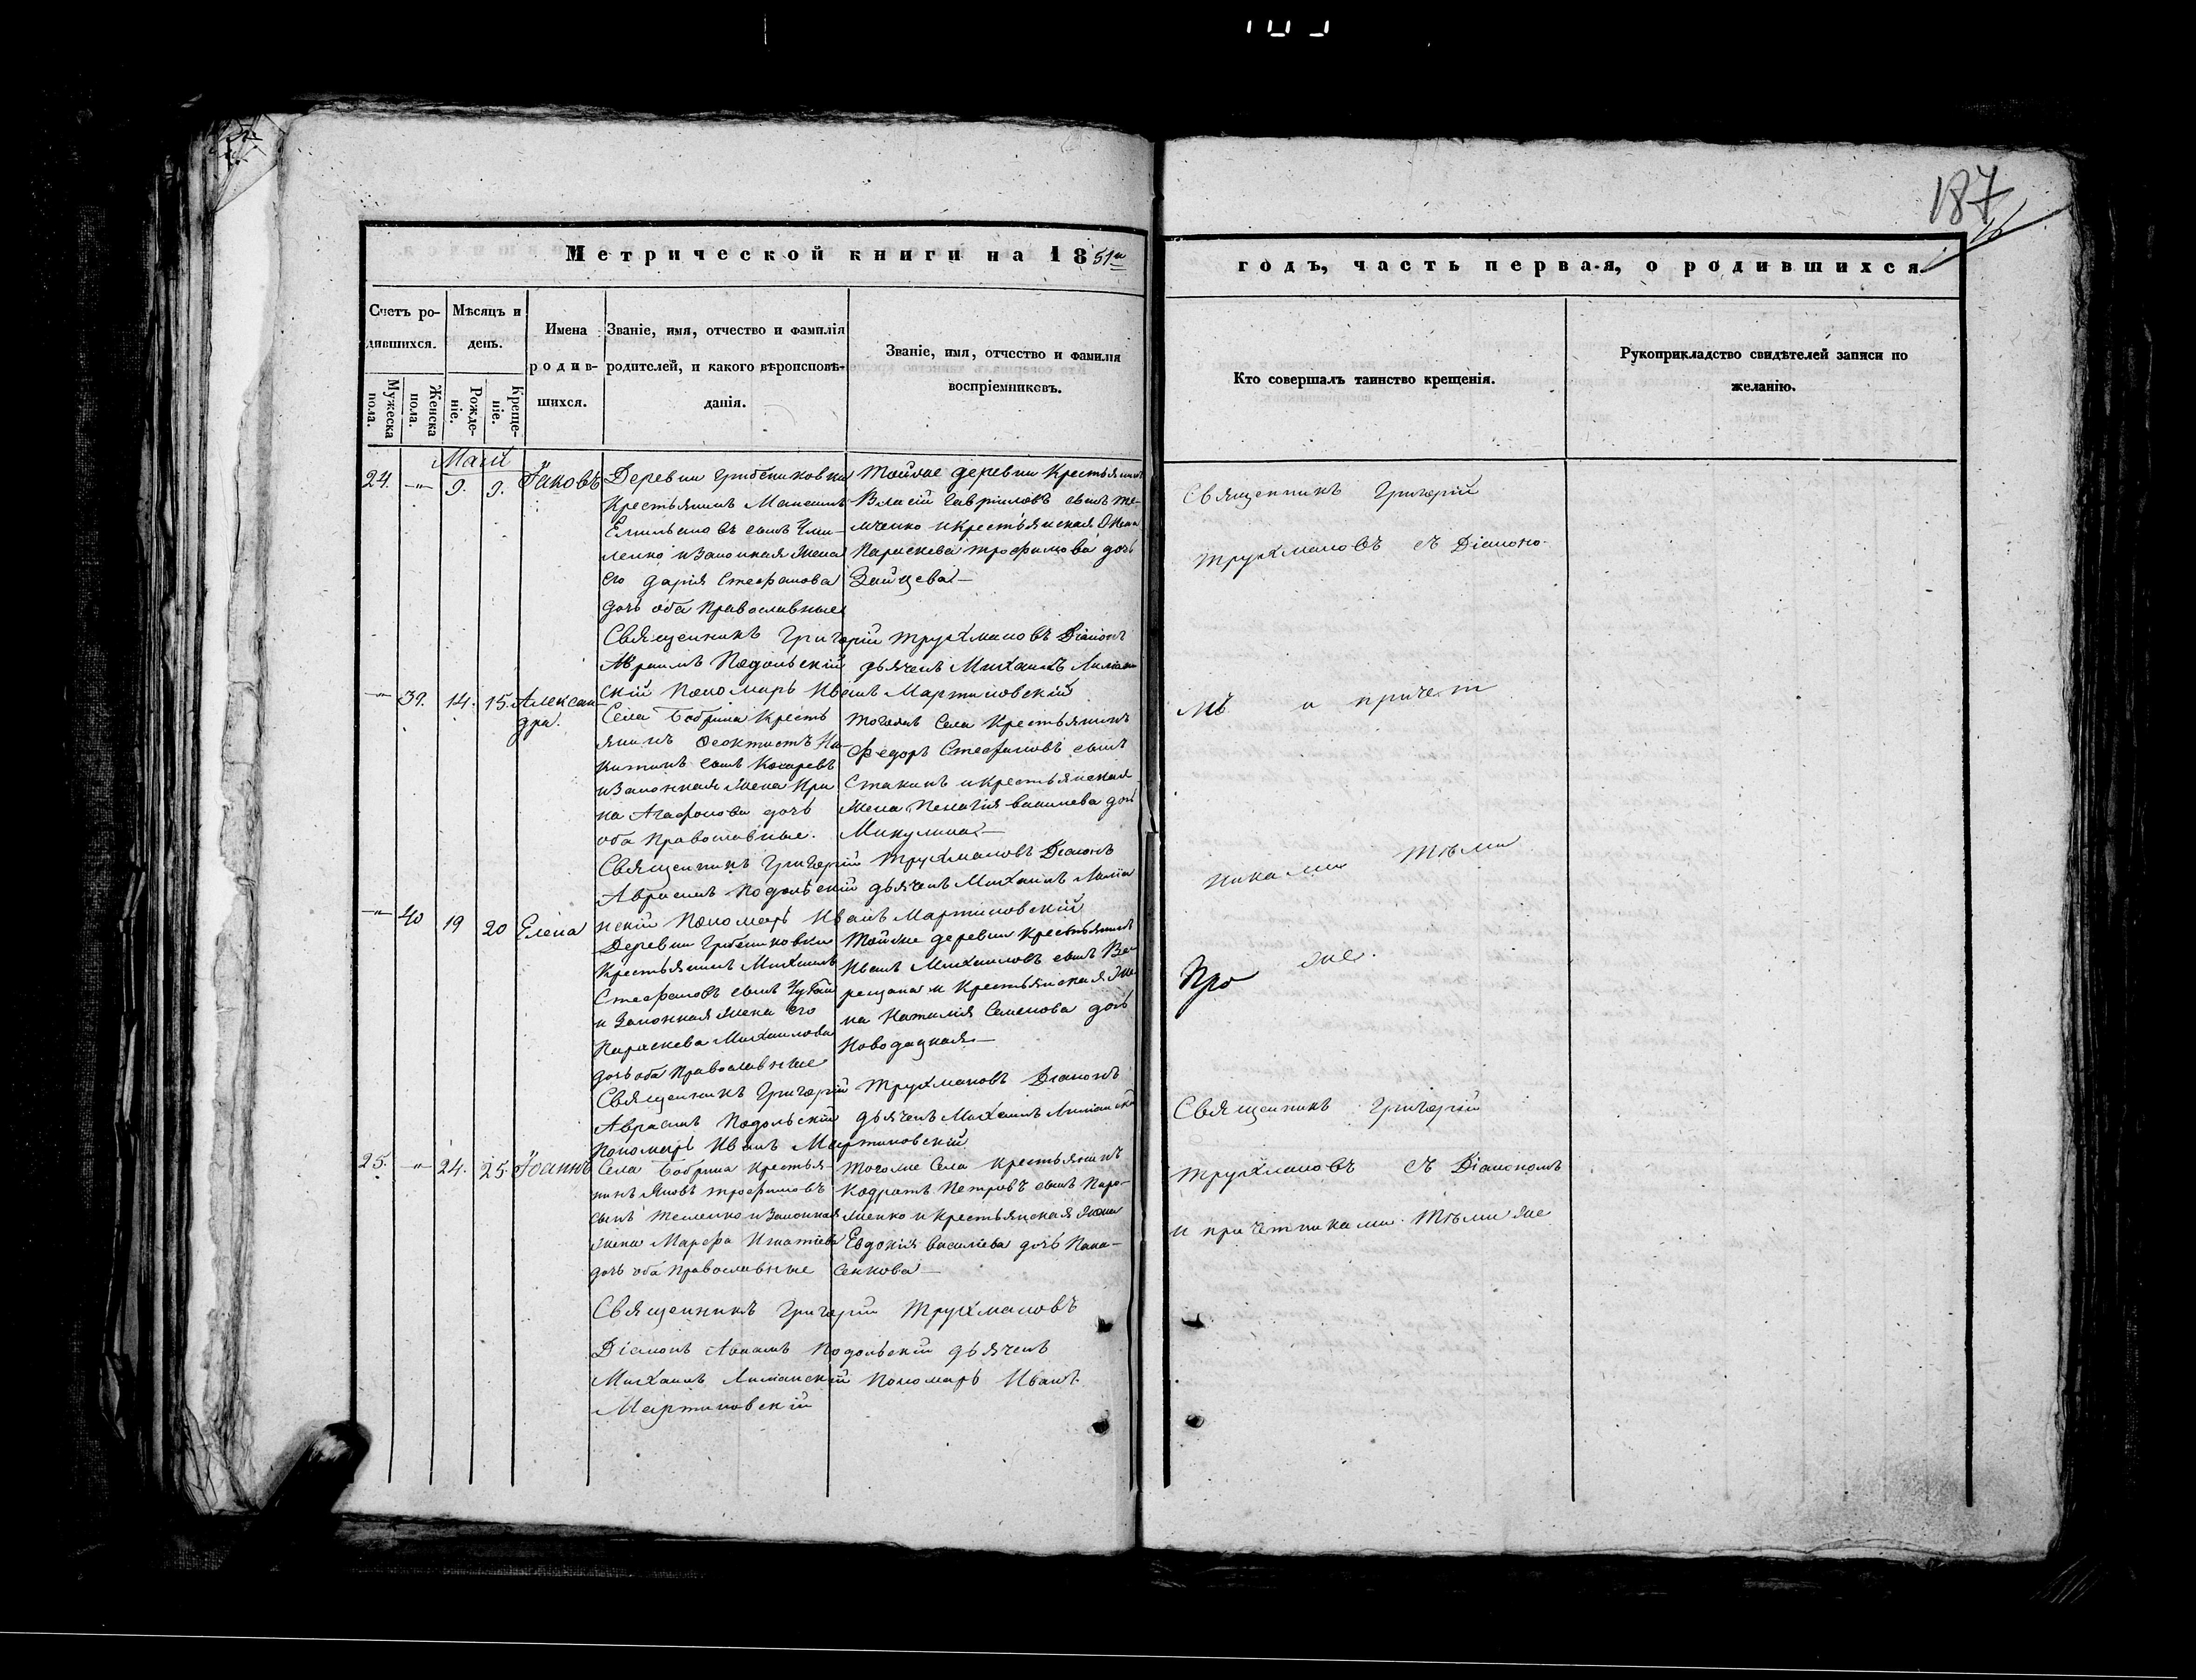 187
Метрической книги на 1851й
годъ, часть первая, о родившихся
Счетъ ро-
дившихся.
Мужеска
пола.
Женска
пола.
Мѣсяцъ и
день.
Рожде-
ніе.
Креще-
ніе.
Имена
родив-
шихся.
Званіе, имя, отчество и фамилія
родителей, и какого вѣроисповѣ-
данія.
Званіе, имя, отчество и фамилія
воспріемниковъ.
Кто совершалъ таинство крещенія.
Рукоприкладство свидѣтелей записи по
желанію.
Маій
24. -"- 9. 9. Іаковъ
Деревни Грибениковки
Крестьянинъ Максимъ
Емильяновъ сынъ
и Законная Жена
его Дарія Стефанова
дочь оба Православные
Тойже деревни Крестьянинъ
Власій Гавріиловъ сынъ
и Крестьянская Жена
Параскева Трофимова дочь
Зайцева
Священникъ Григорій Трухмановъ Діаконъ
Авраамъ Подольскій дьячекъ Михаилъ
Пономарь Иванъ Мартиновскій
-"- 39. 14. 15. Алексан-
дра.
Села Бобрика Кресть
янинъ Феоктистъ Ни-
китинъ сынъ Кохаревъ
и Законная Жена Ири
на Агафонова дочь
оба Православные.
Тогоже Села Крестьянинъ
Федоръ Стефановъ сынъ
Стакинъ и Крестьянская
Жена Пелагія Василева дочь
Микулина
Священникъ Григорій Трухмановъ Діаконъ
Авраамъ Подольскій дьячекъ Михаилъ
нскій Пономарь Иванъ Мартиновскій
-"- 40 19 20 Елена
Деревни Грибениковки
Крестьянинъ Михаилъ
Стефановъ сынъ
и Законная Жена его
Параскева Михаилова
дочь оба Православные
Тойже деревни Крестьянинъ
Иванъ Михаиловъ сынъ Ве-
рещака и Крестьянская Же
на Наталія Семенова дочь
Новодацкая
Священникъ Григорій Трухмановъ Діаконъ
Авраамъ Подольскій дьячекъ Михаилъ
Пономарь Иванъ Мартиновскій
25. -"- 24. 25. Іоаннъ
Села Бобрика Крестья-
нинъ Яковъ Трофимовъ
сынъ Теленко и Законная
Жена Марфа Игнатіева
дочь оба Православные
Тогоже Села Крестьянинъ
Кодратъ Петровъ сынъ Паро-
менко и Крестьянская Жена
Евдокія Василіева дочь Пана-
сенкова
Священникъ Григорій Трухмановъ
Діаконъ Подольскій дьячекъ
Михаилъ Пономарь Иванъ
Мартиновскій
Священникъ Григорій
Трухмановъ съ Діаконо-
мъ и причет
никами тѣми
же.
Священникъ Григорій
Трухмановъ съ Діакономъ
и причетниками тѣми же